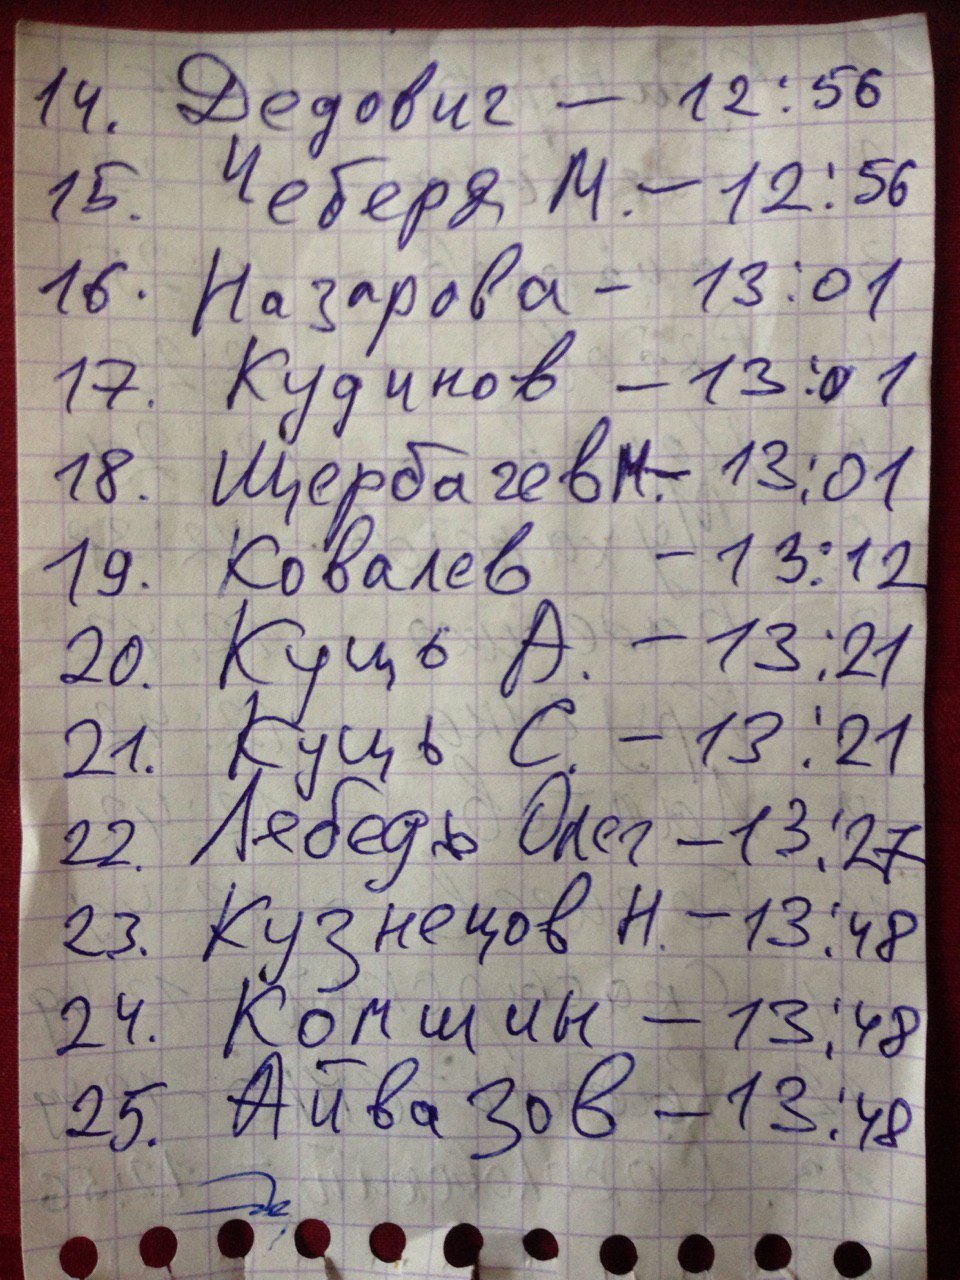 14. Дедович – 12:56
15. Чеберя М. – 12:56
16. Назарова – 13:01
17. Кудинов – 13:01
18. Щербачев М. – 13:01
19. Ковалев – 13:12
20. Куць А. – 13:21
21. Куць С. – 13:21
22. Лебедь Олег – 13:27
23. Кузнецов Н. – 13:48
24. Комшин – 13:48
25. Айвазов – 13:48